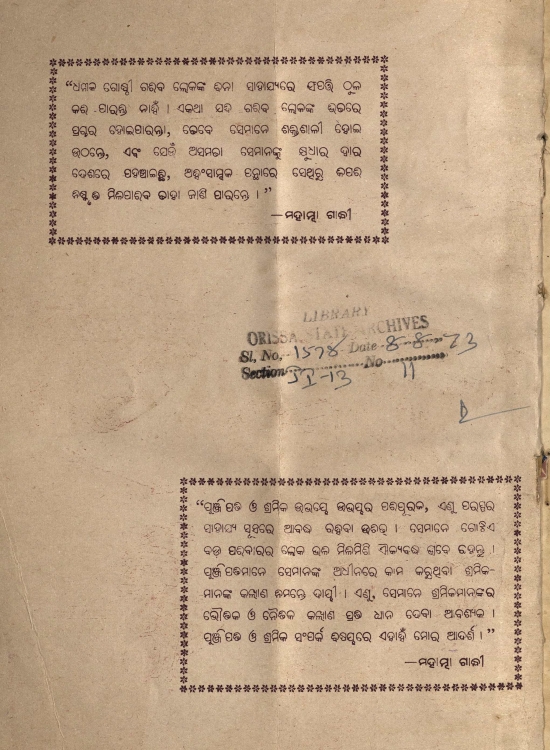 “ଧନୀକ ଗୋଷ୍ଠୀ ଗରିବ ଲୋକଙ୍କ ବିନା ସାହାଯ୍ୟରେ ସଂପତ୍ତି ଠୁଳ
କରି ପାରନ୍ତି ନାହିଁ । ଏକଥା ଯଦି ଗରିବ ଲୋକଙ୍କ ଭିତରେ
ପ୍ରଚାର ହୋଇପାରନ୍ତା, ତେବେ ସେମାନେ ଶକ୍ତିଶାଳୀ ହୋଇ
ଉଠନ୍ତେ, ଏବଂ ଯେଉଁ ଅସମତା ସେମାନଙ୍କୁ କ୍ଷୁଧାର ଦ୍ୱାର
ଦେଶରେ ପହଞ୍ଚାଇଛି, ଅହିଂସାତ୍ମକ ପନ୍ଥାରେ ସେଥିରୁ କିପରି
ନିଷ୍କୃତି ମିଳିପାରିବ ତାହା ଜାଣି ପାରନ୍ତେ ।”
—ମହାତ୍ମା ଗାନ୍ଧୀ
LIBRARY
ORISSA STATE ARCHIVES
Sl. No. 1578 Date 8-8-73
Section No 11
“ପୁଞ୍ଜିପତି ଓ ଶ୍ରମିକ ଉଭୟେ ଉଭୟର ପରିପୂରକ, ଏଣୁ ପରସ୍ପର
ସାହାଯ୍ୟ ସୂତ୍ରରେ ଆବଦ୍ଧ ରହିବା ଉଚିତ । ସେମାନେ ଗୋଟିଏ
ବଡ଼ ପରିବାରର ଲୋକ ଭଳି ମିଳିମିଶି ଐକ୍ୟବଦ୍ଧ ଭାବେ ରହନ୍ତୁ ।
ପୁଞ୍ଜିପତିମାନେ ସେମାନଙ୍କ ଅଧୀନରେ କାମ କରୁଥିବା ଶ୍ରମିକ-
ମାନଙ୍କ କଲ୍ୟାଣ ନିମନ୍ତେ ଦାୟୀ । ଏଣୁ, ସେମାନେ ଶ୍ରମିକମାନଙ୍କର
ଭୌତିକ ଓ ନୈତିକ କଲ୍ୟାଣ ପ୍ରତି ଧ୍ୟାନ ଦେବା ଆବଶ୍ୟକ ।
ପୁଞ୍ଜିପତି ଓ ଶ୍ରମିକ ସଂପର୍କ ବିଷୟରେ ଏହାହିଁ ମୋର ଆଦର୍ଶ ।”
—ମହାତ୍ମା ଗାନ୍ଧୀ